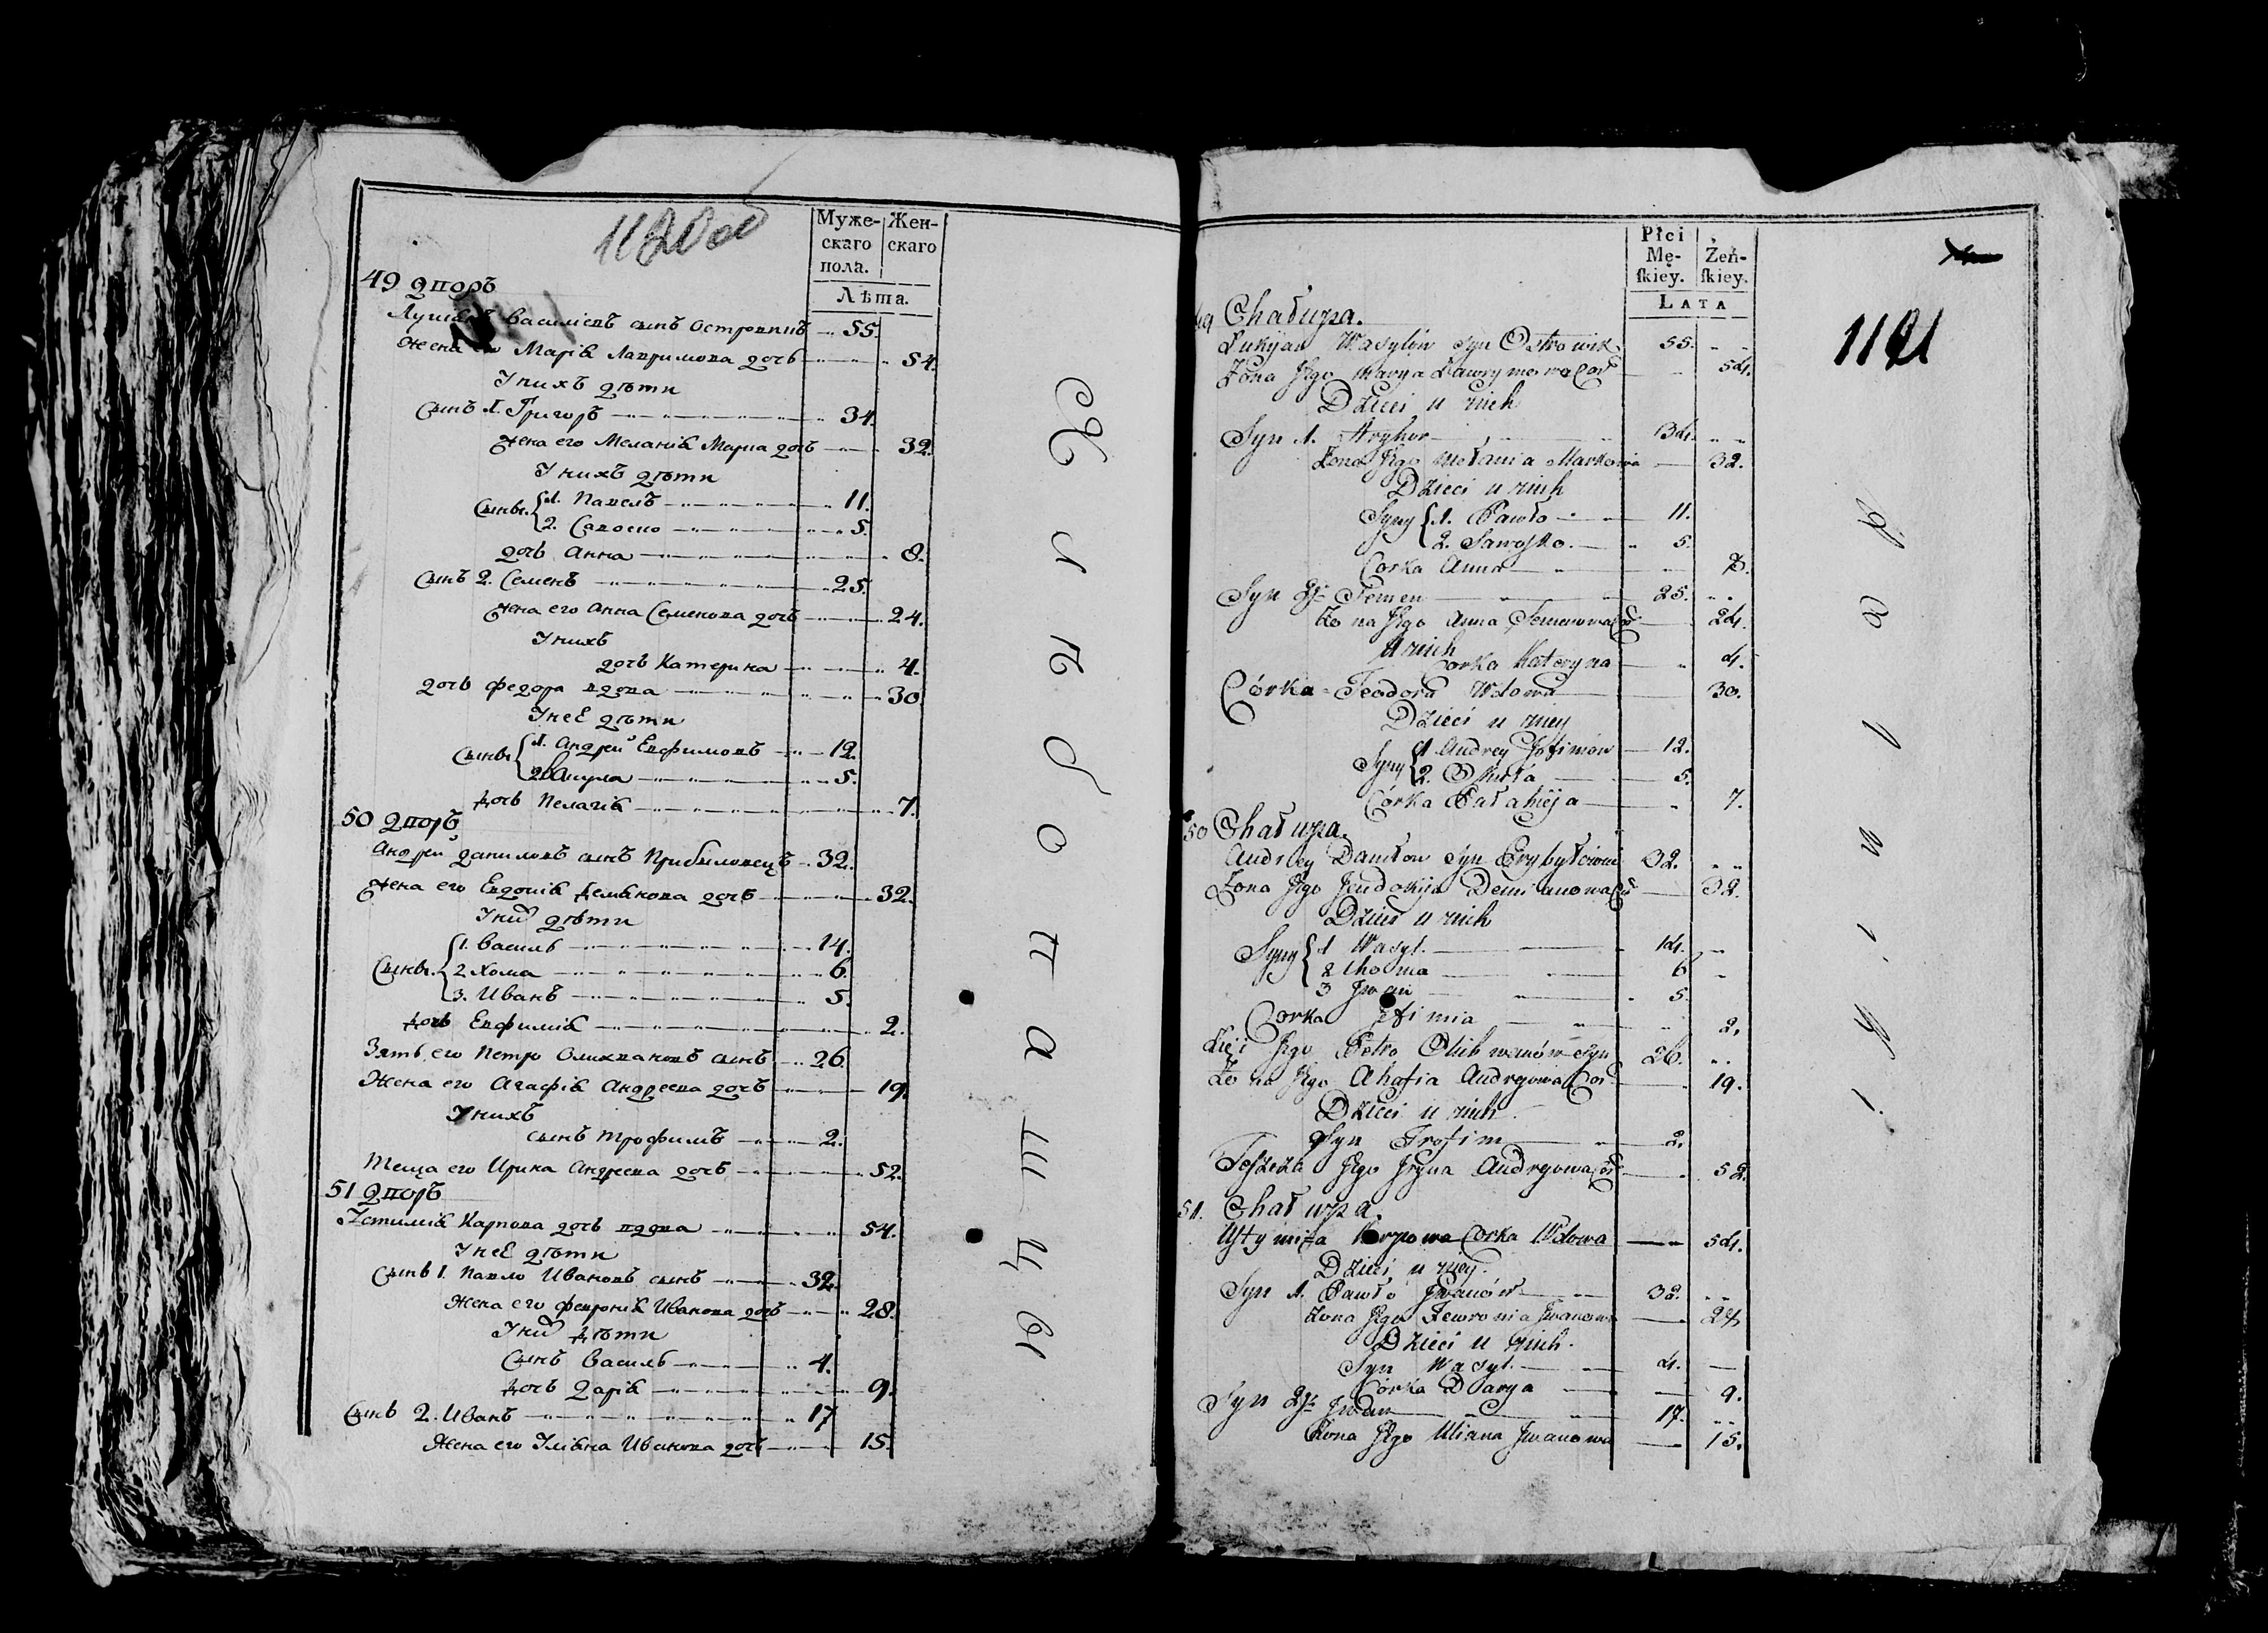 1120 об
Муже-
скаго
пола.
Жен-
скаго
Лѣта.
49 дворъ
Василіевъ сынъ Островикъ 55.
Жена его Марія Лавримова дочь 54.
У нихъ дѣти
Сынъ 1. Григоръ 34.
Жена его Меланія Марка дочь 32.
У нихъ дѣти
Сыны 1. Павелъ 11.
2. Савоско 5.
дочь Анна 8.
Сынъ 2. Семенъ 25.
Жена его Анна Семенова дочь 24.
У нихъ
дочь Катерика 4.
дочь Федора вдова 30
У неё дѣти
Сыны 1. Андрей Евфимовъ 12.
2. Вакула 5.
дочь Пелагія 7.
50 дворъ
Андрей Даниловъ сынъ Прибыловецъ 32.
Жена его Евдокія Демянова дочь 32.
У них дѣти
Сыны 1. Василь 14.
2 Хома 6.
3. Иванъ 5.
дочь Евфимія 2.
Зять его Петро Олихвановъ сынъ 26.
Жена его Агафія Андреева дочь 19.
У нихъ
сынъ Трофимъ 2.
Теща его Ирина Андреева дочь 52.
51 дворъ
Устимія Карпова дочь вдова 54.
У неё дѣти
Сынъ 1. Павло Ивановъ сынъ 32.
Жена его Февронія Иванова дочь 28.
У них дѣти
Сынъ Василь 4.
дочь Дарія 9.
Сынъ 2. Иванъ 17
Жена его Уліяна Иванова дочь 15.
Płci
Mę-
ſkiey.
Żeń-
ſkiey.
LATA
1121
49 Chałupa.
Łukijan Wasylów Syn Ostrowik 55.
Żona Jego Marya Ławrymowa Cór 54.
Dzieci u nich
Syn 1. Hryhor 34.
Żona Jego Mełania Markowa 32.
Dzieci u nich
Syny 1. Pawło 11.
2. Sawosko. 5.
Córka Anna 8.
Syn 2gi Semen 25.
Żona Jego Anna Semenowa Cór 24.
U nich
Córka Kateryna 4.
Córka Teodora Wdowa 30.
Dzieci u niey
Syny 1 Andrey Jofimów 12.
2. Wkuła 5.
Córka Pałahija 7.
50 Chałupa.
Andrey Daniłow Syn 32.
Żona Jego Jeudokija Demianowa Cór 32.
Dzieci u nich
Syny 1 Wasyl. 14.
2 Choma 6
3 Jwan 5.
Córka Jefimia 2.
Zięć Jego Petro Olichwanów Syn 26.
Żona Jego Ahafia Andrejowa Cór 19.
Dzieci u nich
Syn Trofim 2.
Teszcza Jego Jryna Andrejowa Cór 52.
51. Chałupa.
Ustymija Karpowa Córka Wdowa 54.
Dzieci u niey.
Syn 1. Pawło Jwanów 32.
Żona Jego Fewronia Jwanowa 28
Dzieci u nich.
Syn Wasyl. 4.
Córka Darya 9.
Syn 2gi Jwan 17.
Żona Jego Uliana Jwanowa 15.